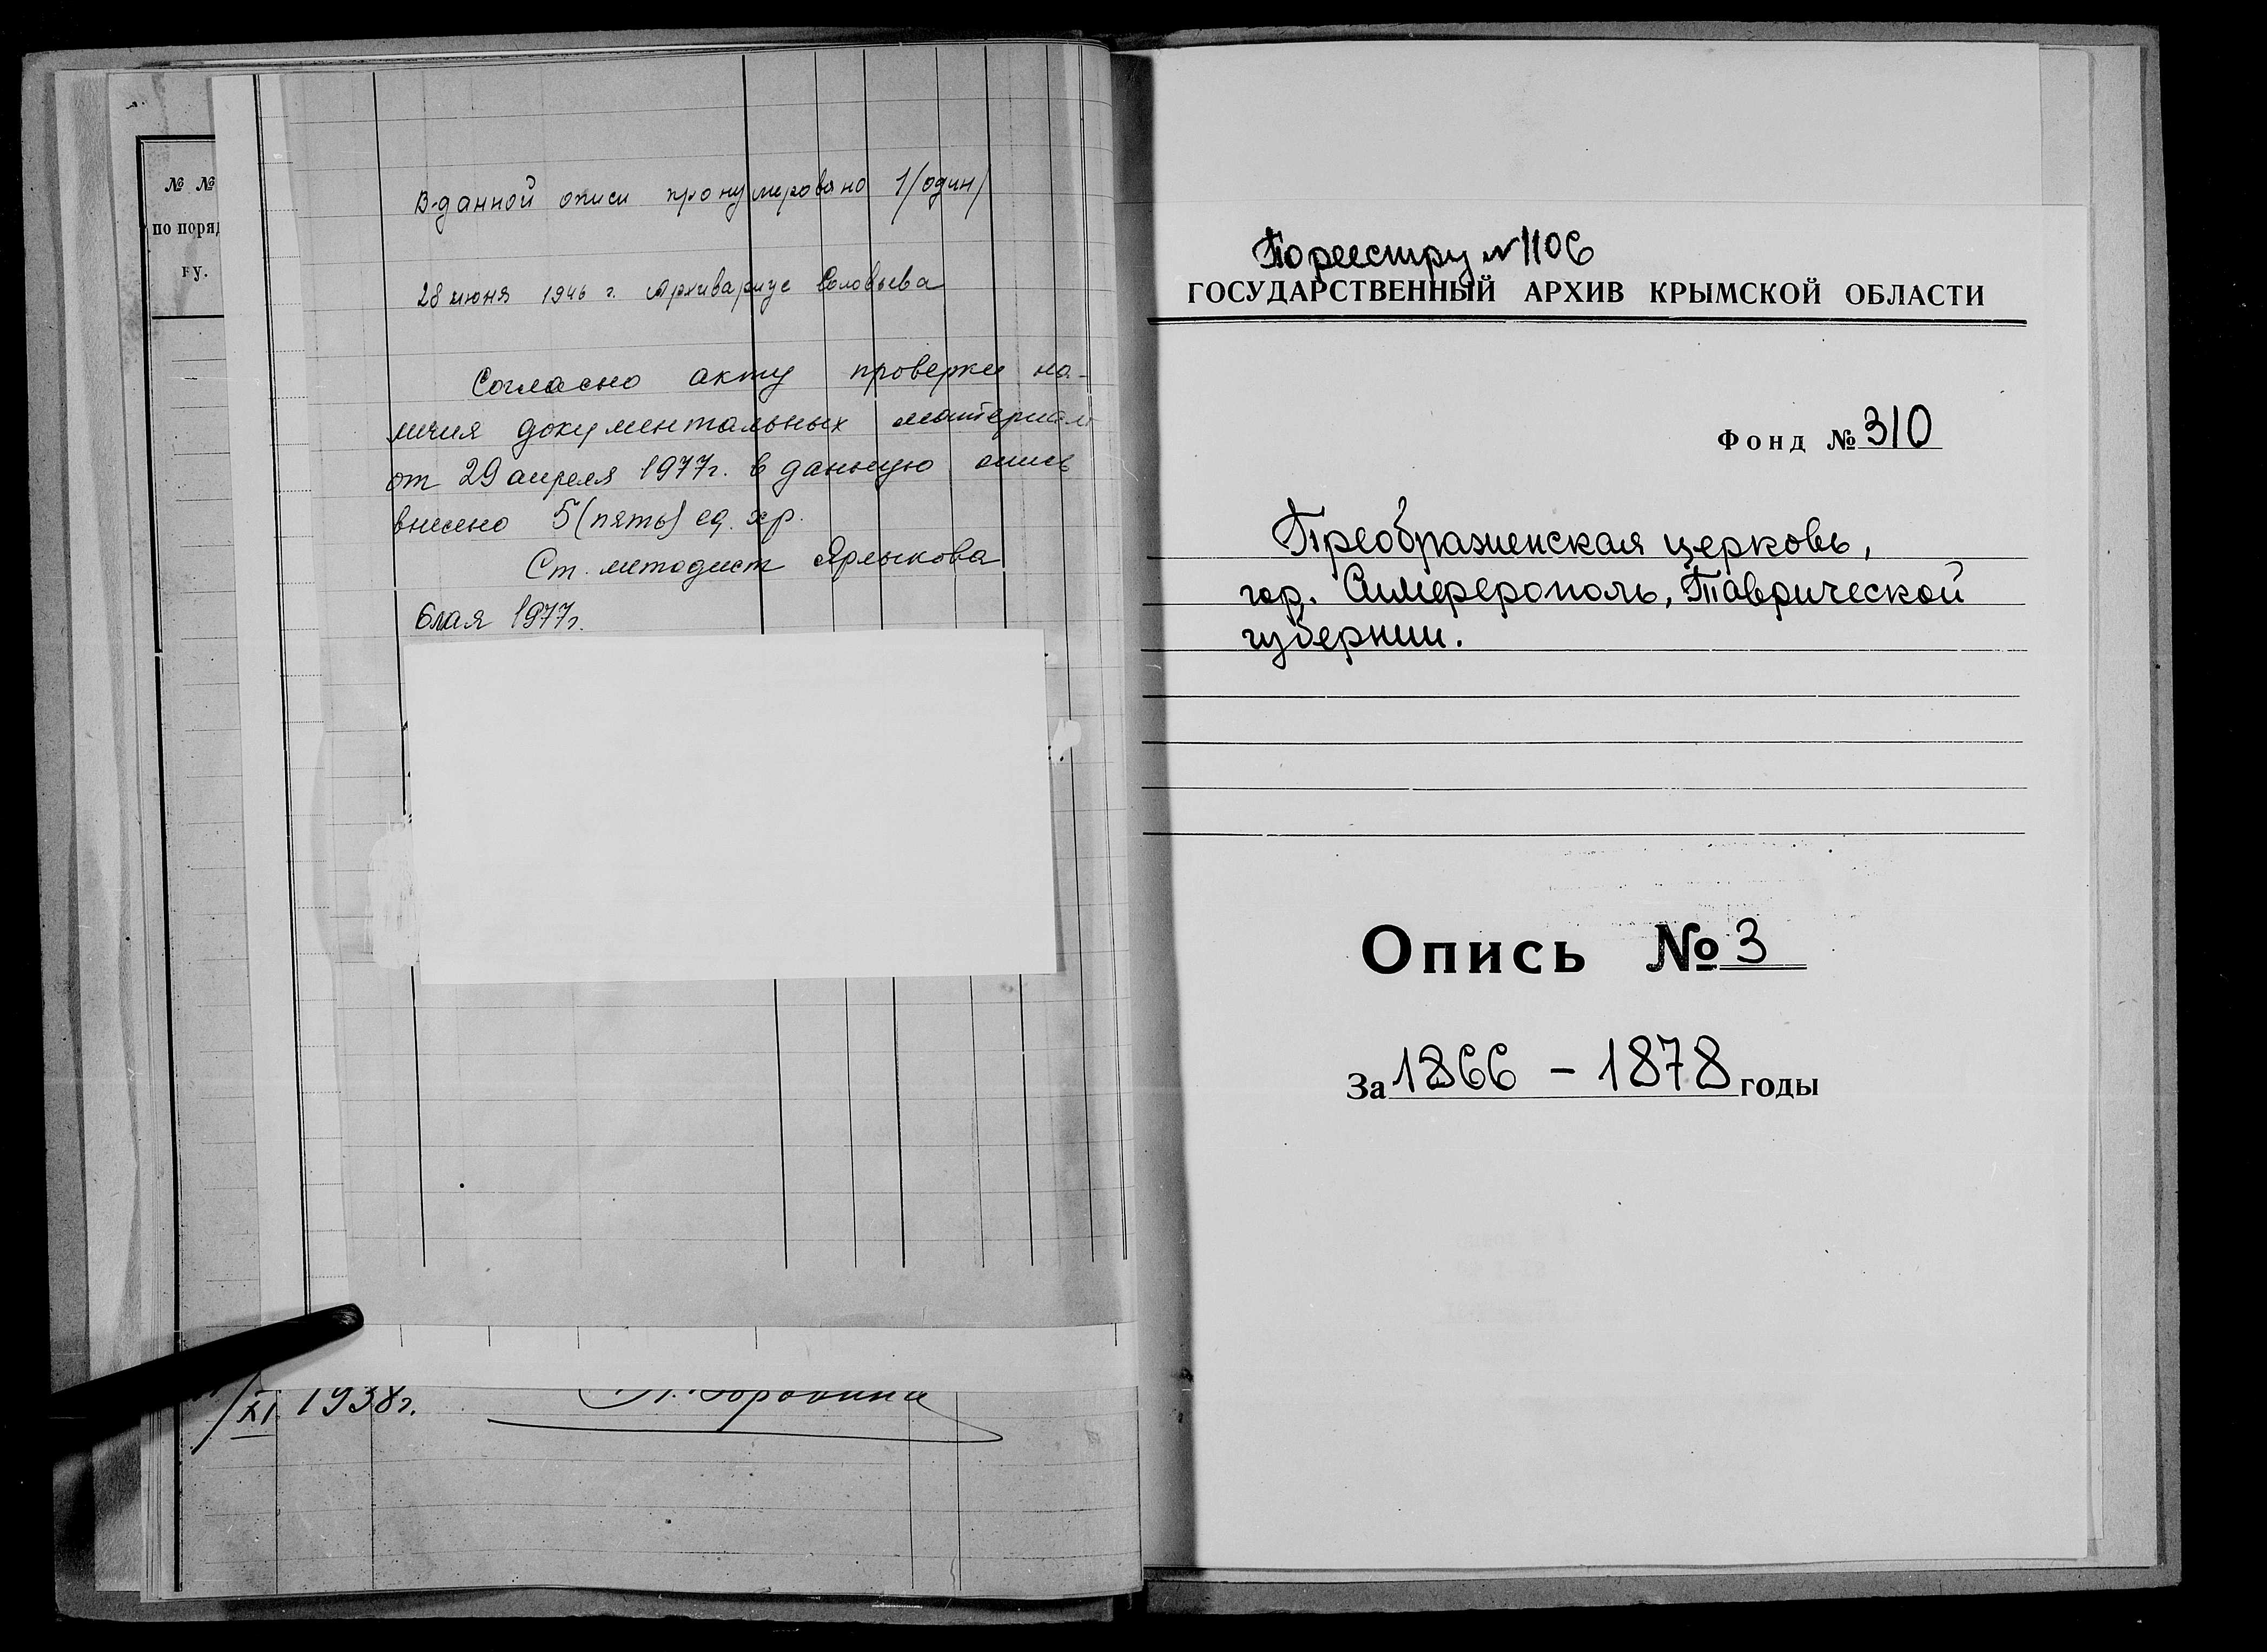 № №
по поряд
ку.
В данной описи пронумеровано 1/один/
28 июня 1946 г. Архивариус Соловьева
Согласно акту проверки на-
личия документальных материал
от 29 апреля 1977г. в данную опись
внесено 5(пять) ед. хр.
Ст. методист Ярлыкова
6 мая 1977г.
XI 1938г.
По реестру №1106
ГОСУДАРСТВЕННЫЙ АРХИВ КРЫМСКОЙ ОБЛАСТИ
Фонд № 310
Преображенская церковь,
гор. Симферополь, Таврической
губернии.
Опись № 3
За 1866 – 1878 годы